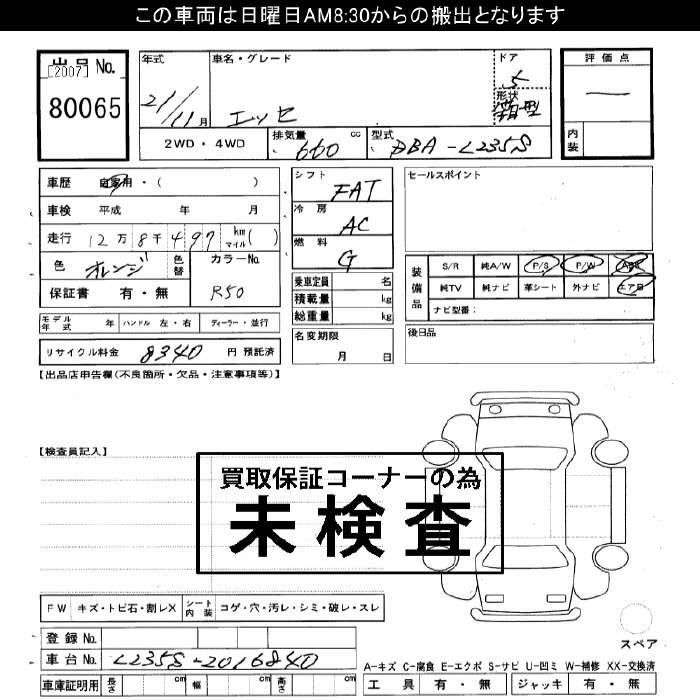 この車両は日曜日AM8:30からの搬出となります
出品 No. [2007] 80065
年式 21/11月
車名・グレード エッセ
ドア 5
形状 箱型
評価点 —
内装
2WD・4WD
排気量 660 cc
型式 DBA-L235S
車歴 自家用・( )
車検 平成 年 月
走行 12万8千497 km マイル( )
色 オレンジ 色替
カラーNo. R50
保証書 有・無
シフト FAT
冷房 AC
燃料 G
乗車定員 名
積載量 kg
総重量 kg
名変期限 月 日
セールスポイント
装備品 S/R 純A/W P/S P/W ABS
純TV 純ナビ 革シート 外ナビ エアB
ナビ型番:
後日品
モデル年式 年 ハンドル 左・右 ディーラー・並行
リサイクル料金 8340 円 預託済
【出品店申告欄(不良箇所・欠品・注意事項等)】
【検査員記入】
買取保証コーナーの為
未検査
FW キズ・トビ石・割レX シート内装 コゲ・穴・汚レ・シミ・破レ・スレ
登録 No.
車台 No. L235S-2016840
車庫証明用 長さ cm 幅 cm 高さ cm
スペア
A-キズ C-腐食 E-エクボ S-サビ U-凹ミ W-補修 XX-交換済
工具 有・無 ジャッキ 有・無